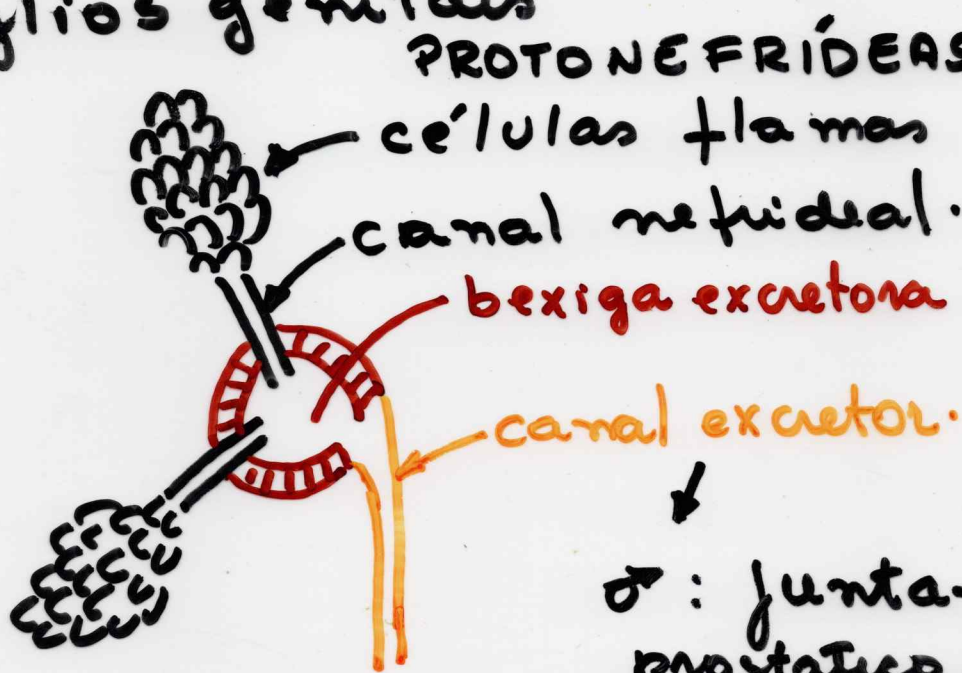 glios genitais
PROTONEFRÍDEAS
células flamas
canal nefrideal.
bexiga excretora
canal excretor.
♂: junta-
prostático